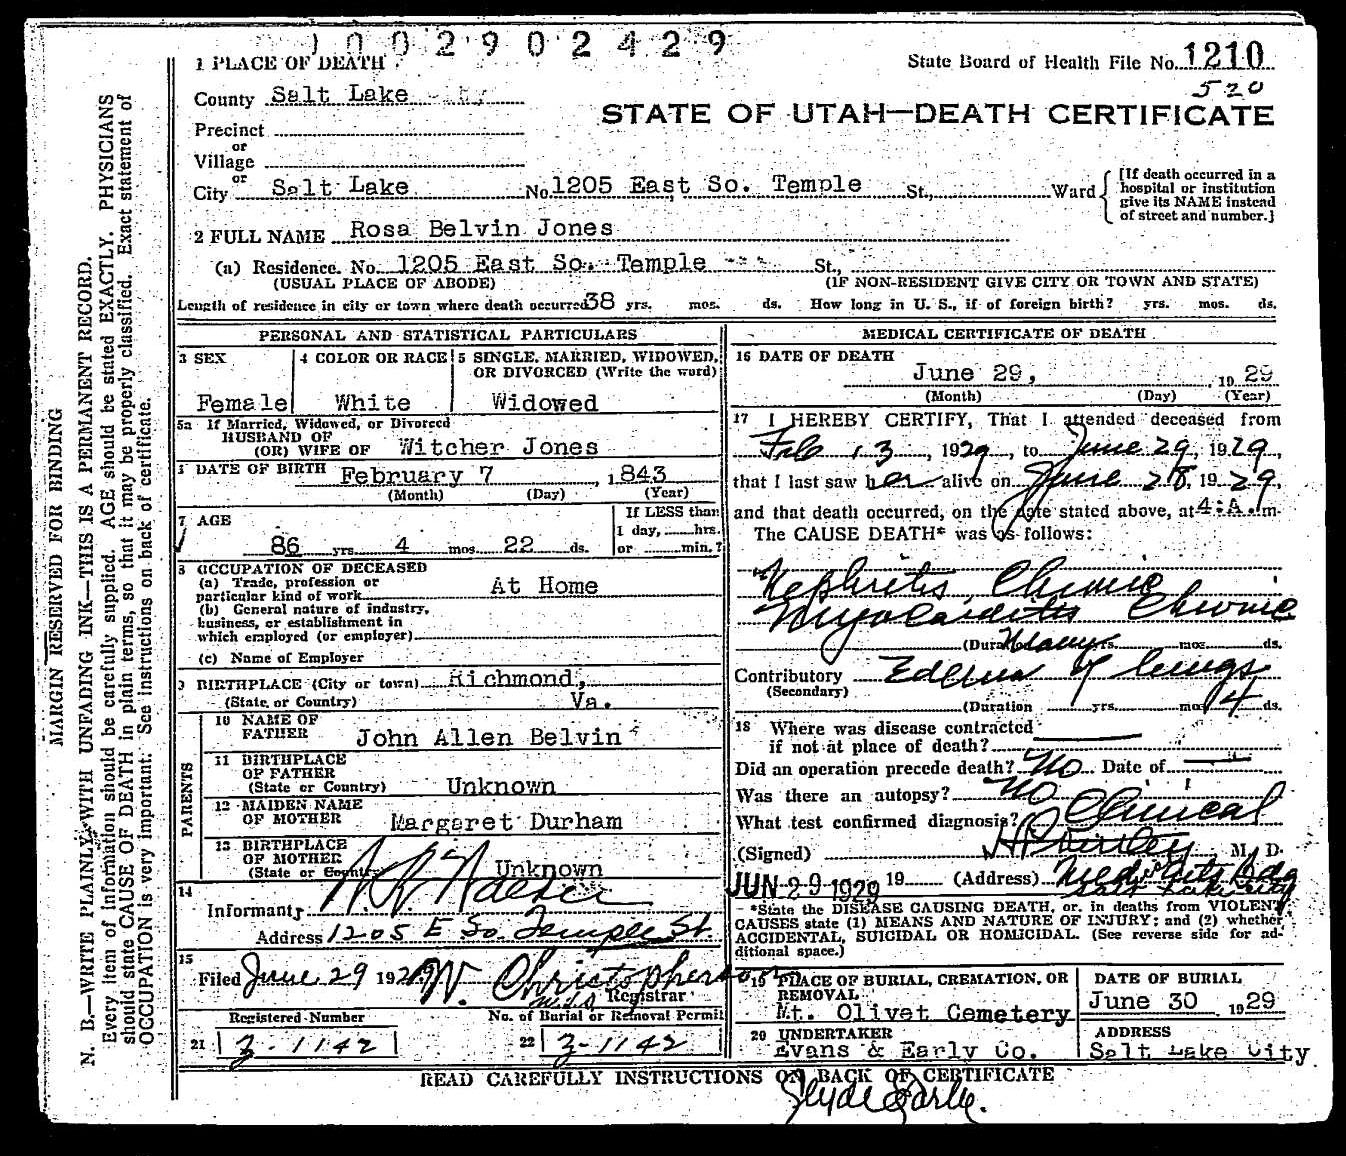 1002902429
1 PLACE OF DEATH
State Board of Health File No. 1210
520
County Salt Lake
STATE OF UTAH—DEATH CERTIFICATE
Precinct
or
Village
or
City Salt Lake No. 1205 East So. Temple St., Ward
[If death occurred in a hospital or institution give its NAME instead of street and number.]
2 FULL NAME Rosa Belvin Jones
(a) Residence. No. 1205 East So. Temple St.,
(USUAL PLACE OF ABODE) (IF NON-RESIDENT GIVE CITY OR TOWN AND STATE)
Length of residence in city or town where death occurred 38 yrs. mos. ds. How long in U. S., if of foreign birth? yrs. mos. ds.
MARGIN RESERVED FOR BINDING
N. B.—WRITE PLAINLY WITH UNFADING INK—THIS IS A PERMANENT RECORD.
Every item of information should be carefully supplied. AGE should be stated EXACTLY. PHYSICIANS
should state CAUSE OF DEATH in plain terms, so that it may be properly classified. Exact statement of
OCCUPATION is very important. See instructions on back of certificate.
PERSONAL AND STATISTICAL PARTICULARS
3 SEX
Female
4 COLOR OR RACE
White
5 SINGLE, MARRIED, WIDOWED,
OR DIVORCED (Write the word)
Widowed
5a If Married, Widowed, or Divorced
HUSBAND OF
(OR) WIFE OF Witcher Jones
DATE OF BIRTH February 7, 1843
(Month) (Day) (Year)
7 AGE
86 yrs. 4 mos. 22 ds.
If LESS than
1 day, hrs.
or min.?
8 OCCUPATION OF DECEASED
(a) Trade, profession or
particular kind of work At Home
(b) General nature of industry,
business, or establishment in
which employed (or employer)
(c) Name of Employer
9 BIRTHPLACE (City or town) Richmond,
(State or Country) Va.
PARENTS
10 NAME OF
FATHER John Allen Belvin
11 BIRTHPLACE
OF FATHER
(State or Country) Unknown
12 MAIDEN NAME
OF MOTHER Margaret Durham
13 BIRTHPLACE
OF MOTHER
(State or Country) Unknown
14
Informant
Address 1205 E So. Temple St.
15
Filed June 29 1929 W. Christopherson
Registrar
Registered Number
21 3-1142
No. of Burial or Removal Permit
22 3-1142
MEDICAL CERTIFICATE OF DEATH
16 DATE OF DEATH
June 29, 1929
(Month) (Day) (Year)
17 I HEREBY CERTIFY, That I attended deceased from
Feb 13, 1929, to June 29, 1929
that I last saw her alive on June 28, 1929,
and that death occurred, on the date stated above, at 4:A.m.
The CAUSE DEATH* was as follows:
Nephritis, Chronic
Myocarditis Chronic
(Duration yrs. mos. ds.
Contributory Edema of lungs
(Secondary)
(Duration yrs. mos. 4 ds.
18 Where was disease contracted
if not at place of death?
Did an operation precede death? No Date of
Was there an autopsy? No
What test confirmed diagnosis? Clinical
(Signed) M. D.
JUN 29 1929 19 (Address) Med Arts Bdg
Salt Lake City
*State the DISEASE CAUSING DEATH, or, in deaths from VIOLENT
CAUSES state (1) MEANS AND NATURE OF INJURY; and (2) whether
ACCIDENTAL, SUICIDAL OR HOMICIDAL. (See reverse side for ad-
ditional space.)
19 PLACE OF BURIAL, CREMATION, OR
REMOVAL
Mt. Olivet Cemetery
DATE OF BURIAL
June 30 1929
20 UNDERTAKER
Evans & Early Co.
ADDRESS
Salt Lake City
READ CAREFULLY INSTRUCTIONS ON BACK OF CERTIFICATE
Clyde Early.